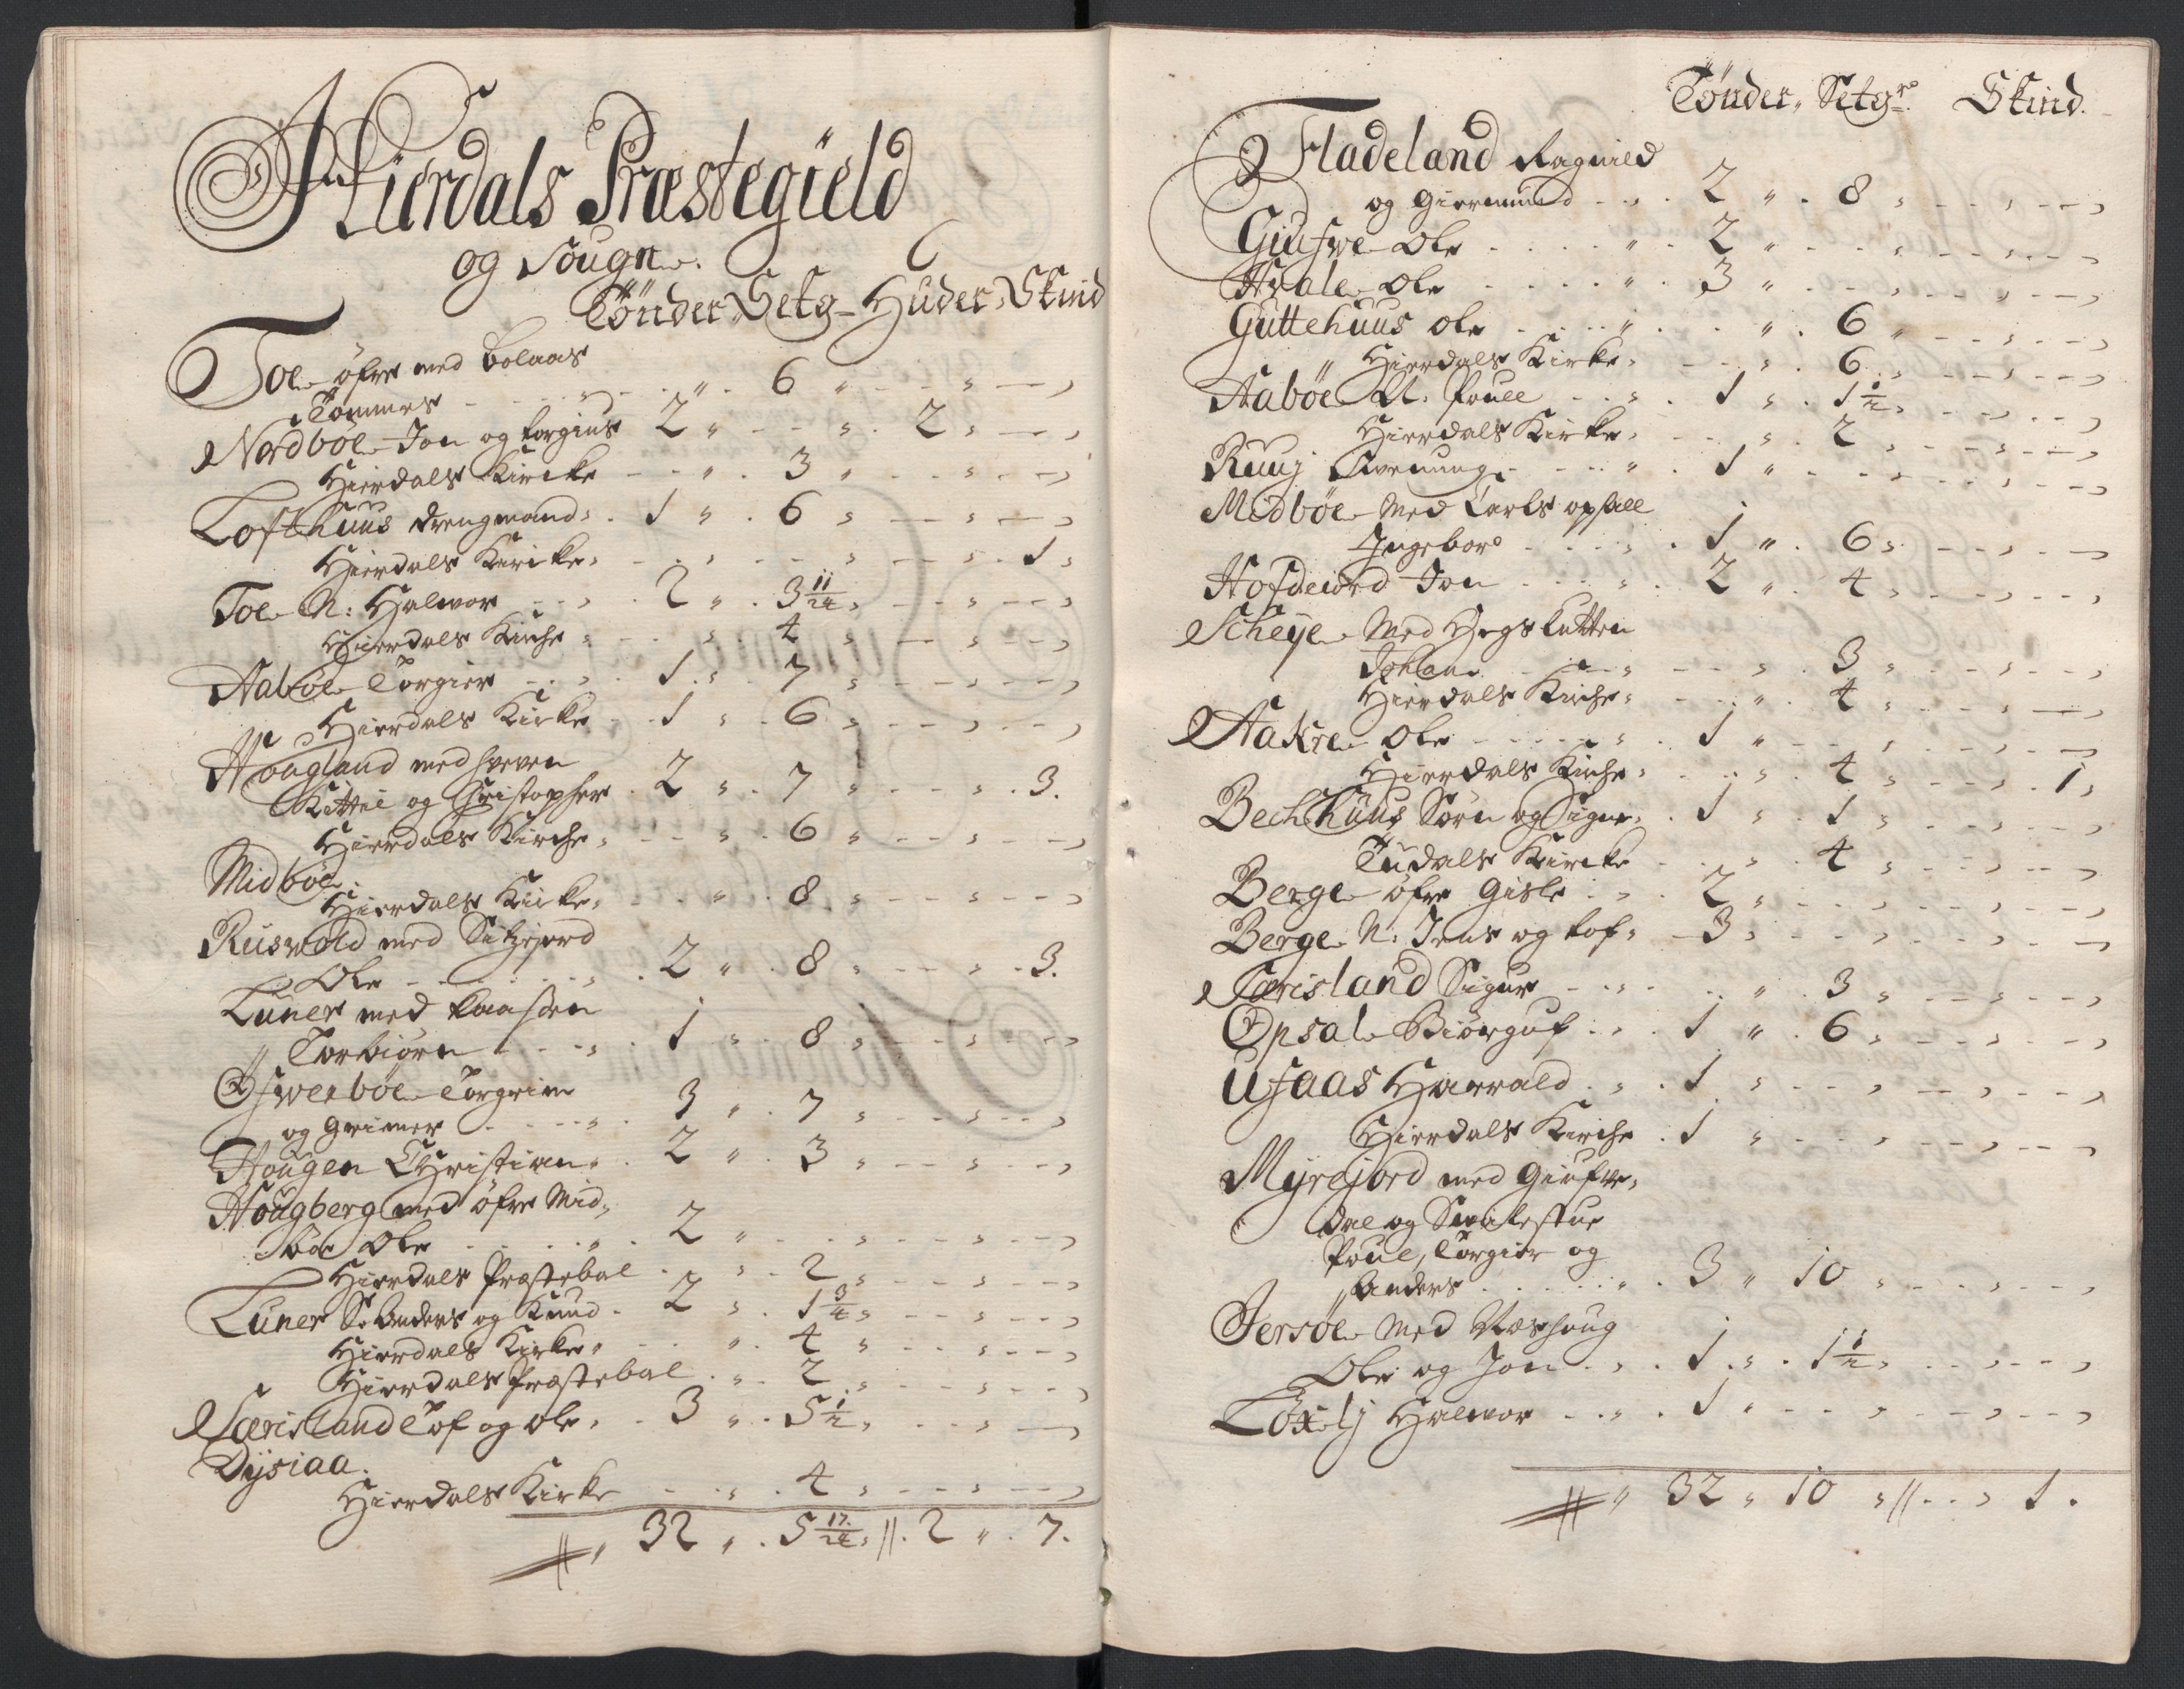 Hierdals Præstegield
og Sougn.
Tönder Setg Huder Skind
Toe öfre med Bolaas
Tommes - - - „ - 6 „ - - - -
Nordböe Jon og Torgius 2 „ - - „ 2 „ - -
Hierdals Kircke - - „ 3 „ - - - -
Lofthuus Drengmand 1 „ 6 „ - - - -
Hierdals Kircke - - - - - - 1
Toe N: Halvor - - 2 „ 3 11/24 „ - - - -
Hierdals Kirche - - „ 4 „ - - - -
Aaböe Torgier - - 1 „ 7 „ - - - -
Hierdals Kirke - 1 „ 6 „ - - - -
Hougland med
Kittel og Christopher 2 „ 7 „ - - - 3.
Hierdals Kirche - - „ 6 „ - - - -
Midböe
Hierdals Kircke - - „ 8 „ - - - -
Ruswold med
Ole - - - 2 „ 8 „ - - - 3.
Luner med Kaasen
Torbiörn - - - 1 „ 8 „ - - - -
Ofwerböe Torgrim
og Grimer - - - 3 „ 7 „ - - - -
Hougen Christian 2 „ 3 „ - - - -
Hougberg med öfre Mid-
böe Ole - - - 2 „ - - - - - -
Hierdals Præstebol - „ 2 „ - - - -
Luner S: Anders og Knud - 2 „ 1 3/4 „ - - - -
Hierdals Kirke - - „ 4 „ - - - -
Hierdals Præstebol - „ 2 „ - - - -
Særisland Tof og Ole - 3 „ 5 1/2 „ - - - -
Dysiaa.
Hierdals Kirke - - „ 4 „ - - - -
„ 32 „ 5 17/24 „ 2 „ 7.
Tönder Setgr. Skind.
Fladeland Ragnild
og Giermund - - 2 „ 8 „ - - - -
Giufwe Ole - - - 2 „ - - - - -
Hvale Ole - - - 3 „ - - - - -
Guttehuus Ole - - - „ 6 „ - - - -
„ Hierdals Kirke - - - 6 „ - - - -
Aaböe N: Poull - - 1 „ 1 1/2 „ - - - -
Hierdals Kirke - - „ 2 „ - - - -
Ruuj - - - 1 „ - - - - -
Midböe Med Carls opsall
Ingebor - - - 1 „ 6 „ - - - -
Hofdeiord Jon - - - 2 „ 4 „ - - - -
Scheye Med
Johan - - - - „ 3 „ - - - -
Hierdals Kirche - - „ 4 „ - - - -
Aakre Ole - - - 1 „ - - - - -
Hierdals Kirche - - „ 4 „ - - - 1
Bechhuus Sörn og Signe 1 „ 1 „ - - - -
Tudals Kircke - - „ 4 „ - - - -
Berge öfre Gisle - - 2 „ - - - - -
Berge N: Jens og Tof - 3 „ - - - - -
Særisland Sigur - - - „ 3 „ - - - -
Opsal Biörguf - - 1 „ 6 „ - - - -
Ufaas Harrald - - 1 „ - - - - -
Hierdals Kirche - 1 „ - - - - -
Myrejord med Giufwe-
dal og
Poul, Torgier og
Anders - - - - 3 „ 10 „ - - - -
Jersöe Med
Ole og Jon - - 1 „ 1 1/2 „ - - - -
Loxely Halvor - - - 1 „ - - - - -
„ 32 „ 10 „ - - 1.